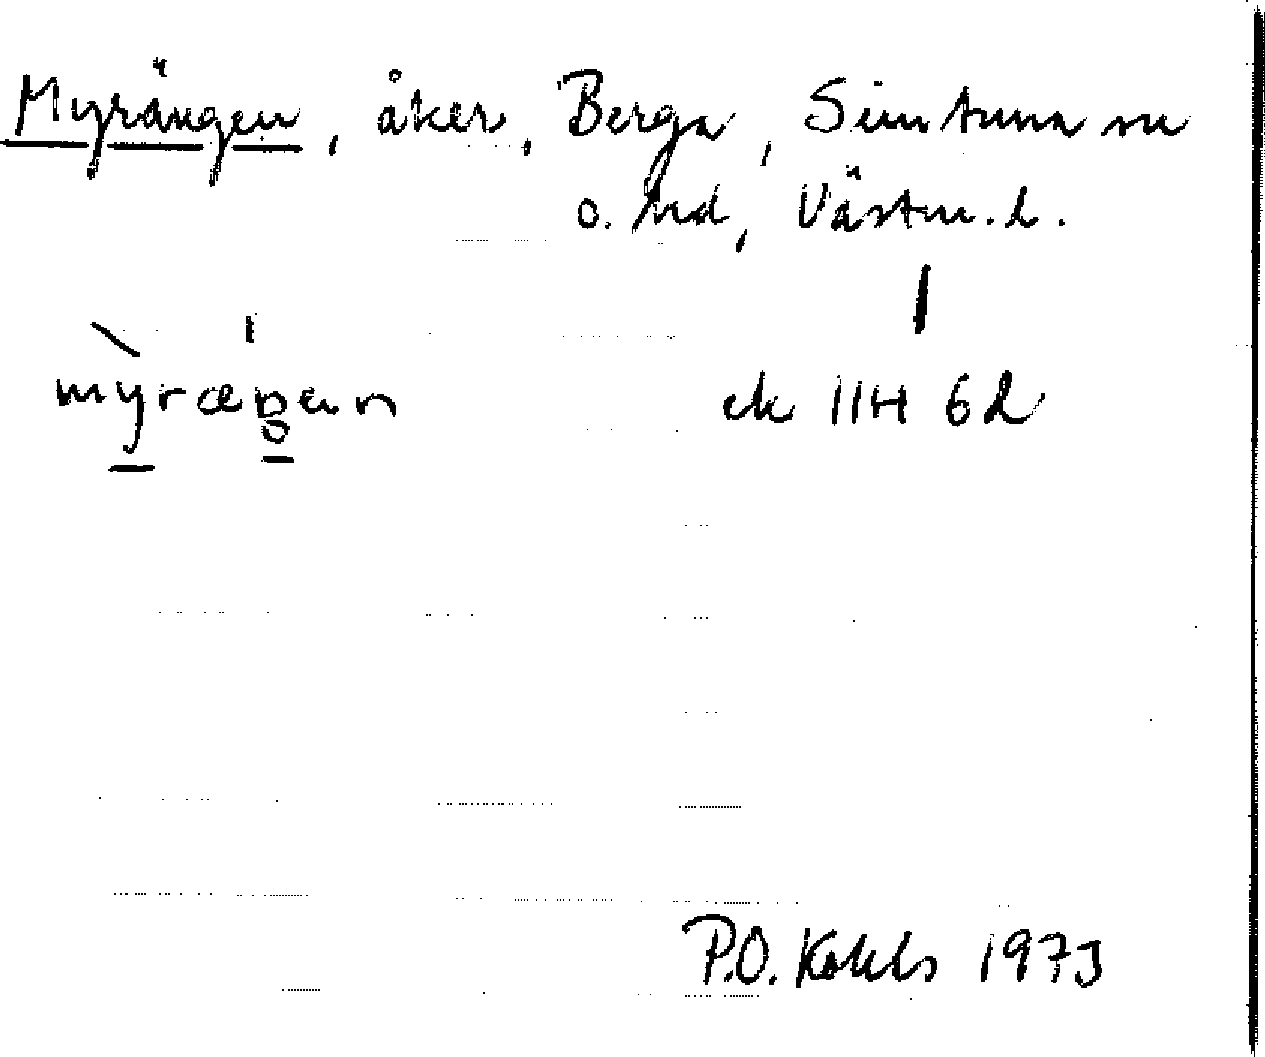 Myrängen, åker, Berga, Simtuna sn
o. hd, Västm. l.
ek 11H 6d
P.O. 1973